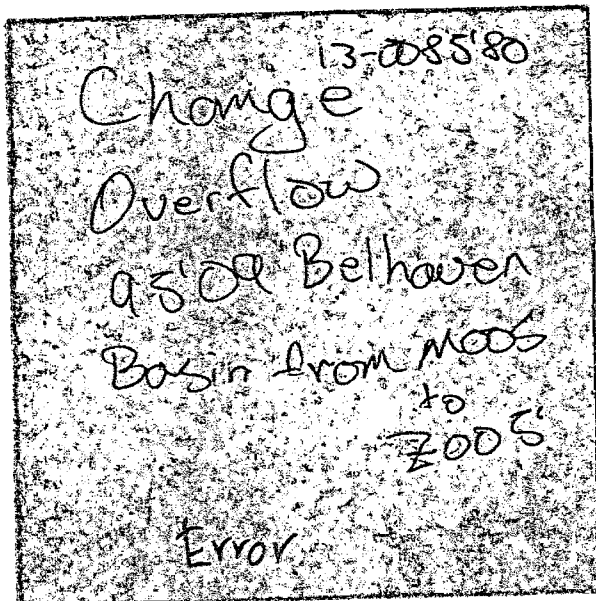 13-008580
Change
Overflow
9509 Belhaven
Basin from M005
to
Z005
Error